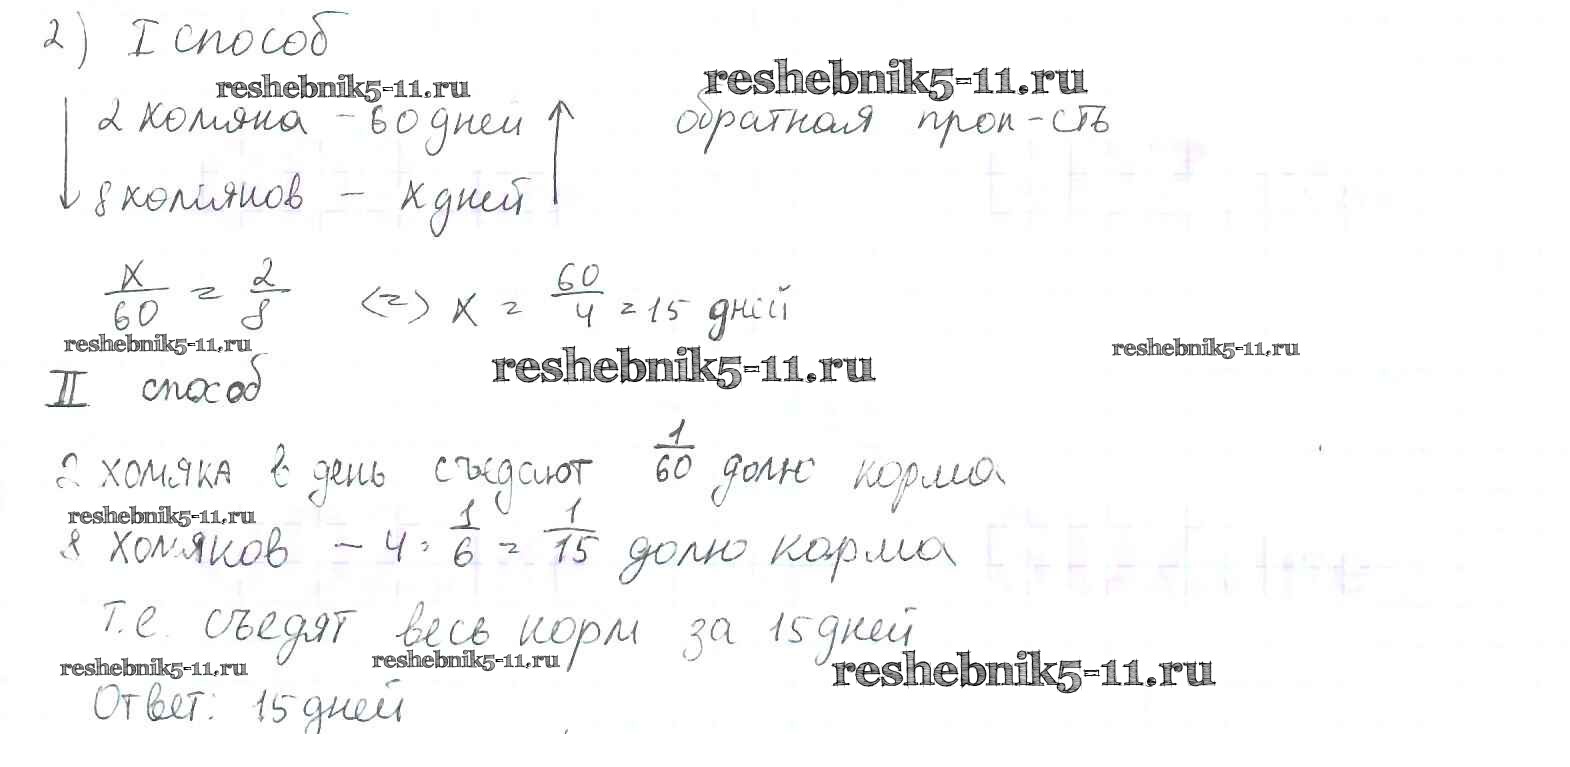 2) I способ
reshebnik5-11.ru reshebnik5-11.ru
2 хомяка - 60 дней обратная проп-сть
8 хомяков - x дней
x/60 = 2/8 <=> x = 60/4 = 15 дней
reshebnik5-11.ru reshebnik5-11.ru reshebnik5-11.ru
II способ
2 хомяка в день съедают 1/60 долю корма
reshebnik5-11.ru
8 хомяков - 4 · 1/6 = 1/15 долю корма
т.е. съедят весь корм за 15 дней
reshebnik5-11.ru reshebnik5-11.ru reshebnik5-11.ru
Ответ: 15 дней